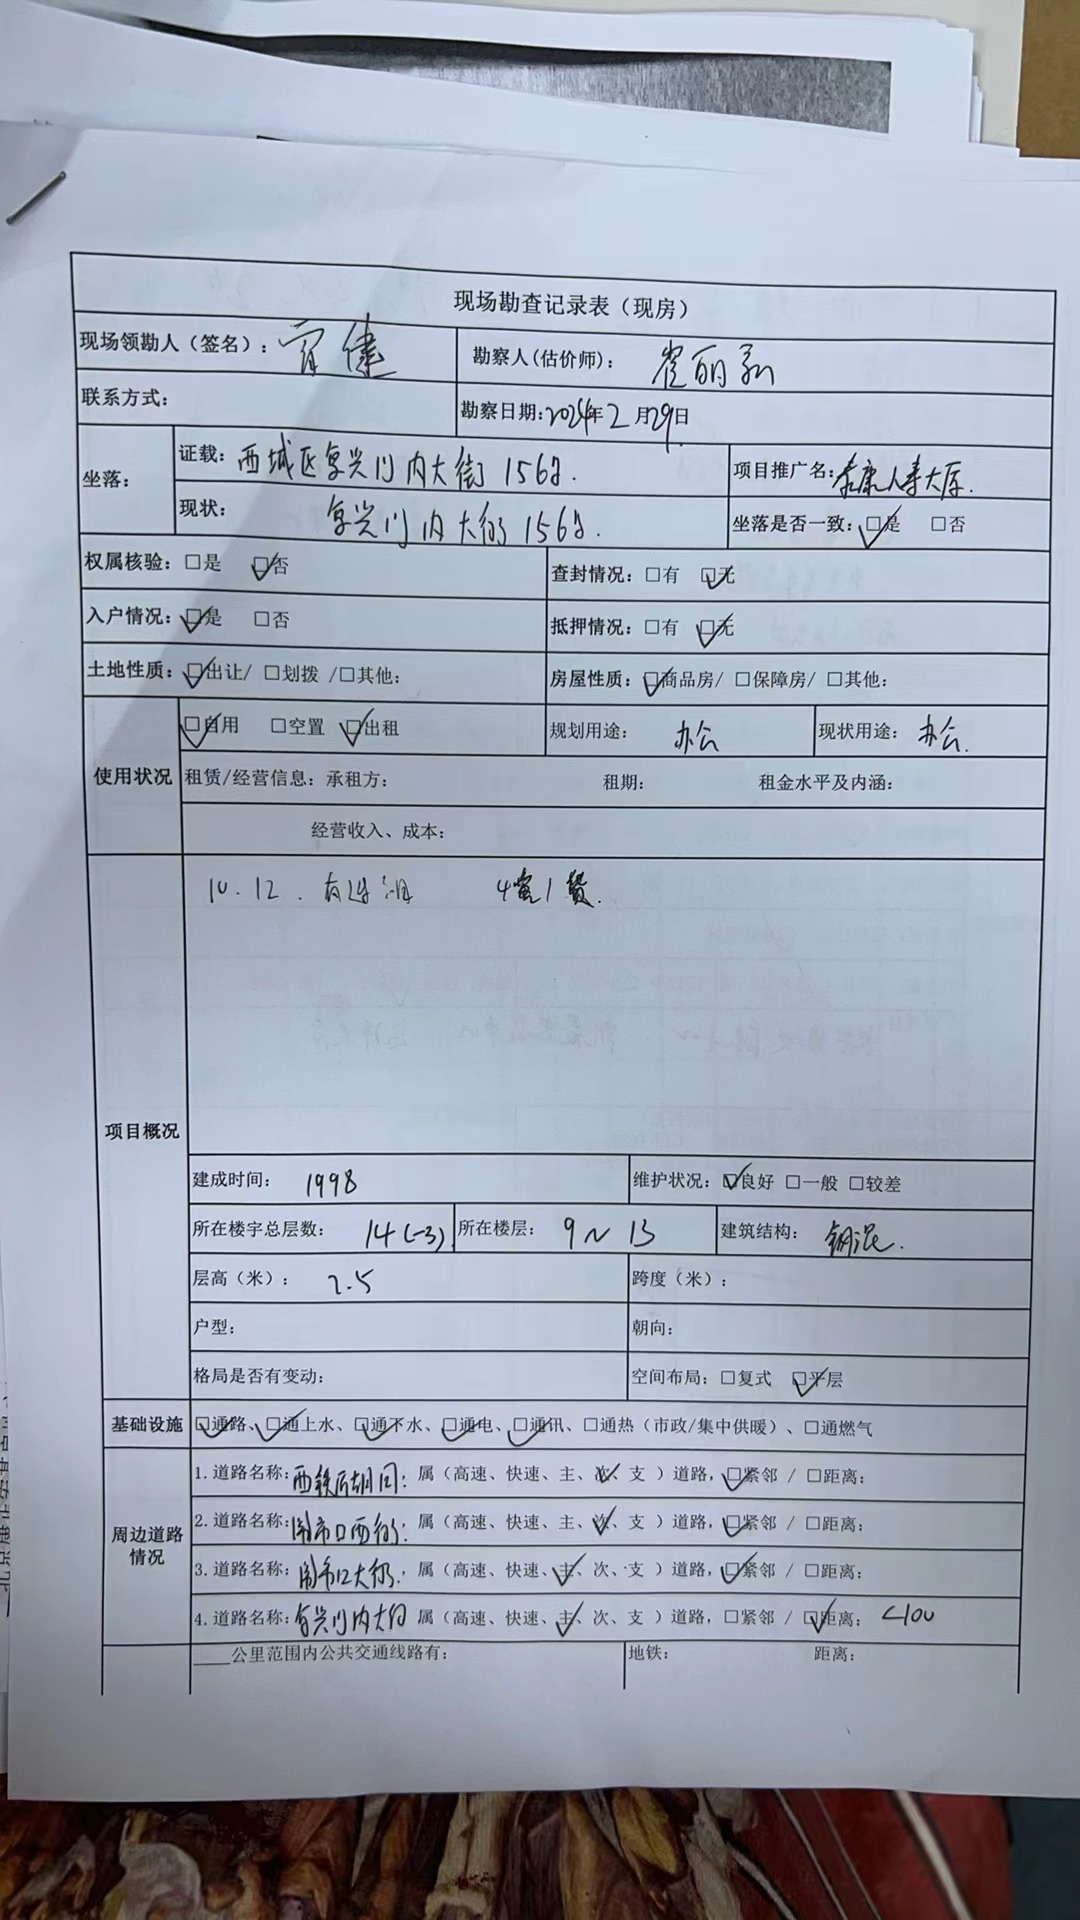 现场勘查记录表（现房）
现场领勘人（签名）： 健
勘察人(估价师)： 崔丽
联系方式：
勘察日期:2024年2月29日
坐落：
证载：西城区复兴门内大街156号.
项目推广名:泰康人寿大厦.
现状： 复兴门内大街156号.
坐落是否一致：☑是 □否
权属核验：□是 ☑否
查封情况：□有 ☑无
入户情况：☑是 □否
抵押情况：□有 ☑无
土地性质：☑出让/ □划拨 /□其他:
房屋性质：☑商品房/ □保障房/ □其他:
使用状况
☑自用 □空置 ☑出租
规划用途： 办公
现状用途： 办公.
租赁/经营信息：承租方： 租期： 租金水平及内涵：
经营收入、成本：
项目概况
10.12. 4客1货.
建成时间： 1998
维护状况：☑良好 □一般 □较差
所在楼宇总层数： 14(-3)
所在楼层： 9~13
建筑结构： 钢混.
层高（米）： 2.5
跨度（米）：
户型：
朝向：
格局是否有变动：
空间布局：□复式 ☑平层
基础设施
☑通路、☑通上水、☑通下水、☑通电、☑通讯、□通热（市政/集中供暖）、□通燃气
周边道路情况
1.道路名称:西铁后胡同：属（高速、快速、主、次、支 ）道路，☑紧邻 / □距离：
2.道路名称:闹市口西街：属（高速、快速、主、次、支 ）道路，☑紧邻 / □距离：
3.道路名称:闹市口大街：属（高速、快速、主、次、支 ）道路，☑紧邻 / □距离：
4.道路名称:复兴门内大街 属（高速、快速、主、次、支 ）道路，□紧邻 / ☑距离：<100
____公里范围内公共交通线路有：
地铁： 距离：